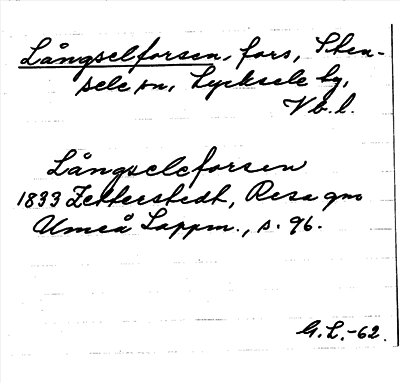 Långselforsen, fors, Sten-
sele sn, Lycksele tg,
Vb. l.
Långseleforsen
1833 Zetterstedt, Resa gm
Umeå Lappm., s. 96.
G. L. -62.